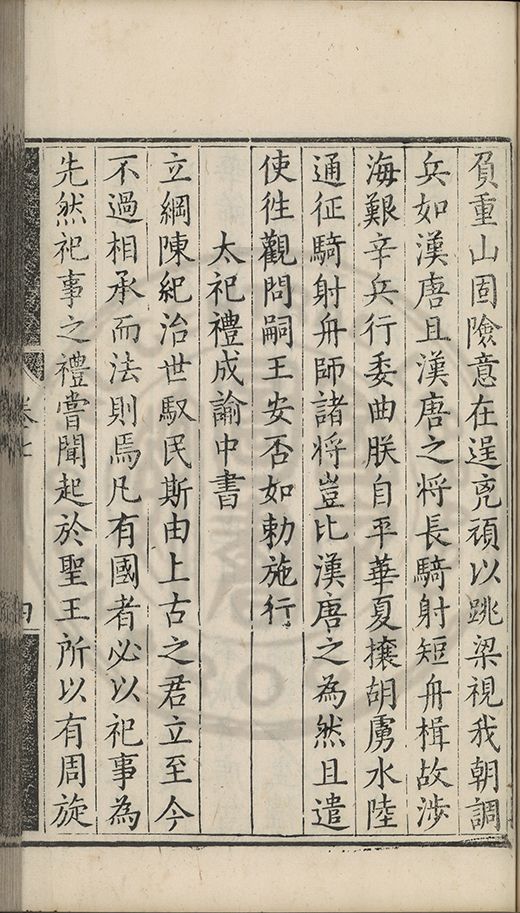 負重山固險意在逞兇頑以跳梁視我朝調
兵如漢唐且漢唐之将長騎射短舟楫故渉
海艱辛兵行委曲朕自平華夏攘胡虜水陸
通征騎射舟師諸将豈比漢唐之為然且遣
使徃觀問嗣王安否如勅施行
太祀禮成諭中書
立綱陳紀治世馭民斯由上古之君立至今
不過相承而法則焉凡有國者必以祀事為
先然祀事之禮嘗聞起於聖王所以有周旋
卷七
四